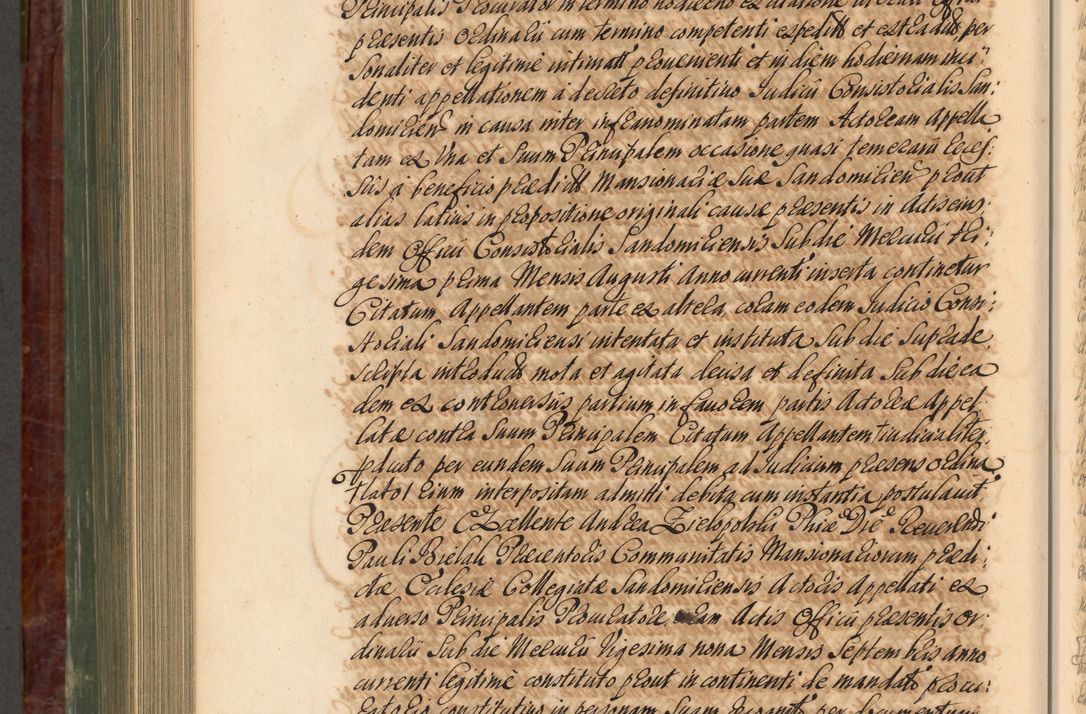 Principalis Procurator in termino hodierno ex
præsentis Ordinarii cum termino competenti expedit et extradit per
sonaliter et legitime intimat provenienti et in diem hodiernam inci:
denti appellationem a decreto definitivo Judicii Consistorialis San:
domirien in causa inter infranominatam partem Actoream Appella
tam ex Una et Suum Principalem occasione quasi temerarii Exces:
sus a beneficio prædict Mansionariæ Suæ Sandomirien prout
alias latius in propositione originali causæ præsentis in Actis eius
dem Officii Consistorialis Sandomiriensis Sub die Mercurii tri:
gesima prima Mensis Augusti Anno currenti inserta continetur
Citatum Appellantem parte ex altera, coram eodem Judicio Consi:
storiali Sandomiriensi intentata et instituta Sub die Suprade
scripta introduct mota et agitata decisa et definita Sub die ea
dem ex controversiis partium in favorem partis Actoreæ Appel
latæ contra Suum Principalem Citatum Appellantem iudicialiter
per eundem Suum Principalem ad Judicium præsens Ordina
rium interpositam admitti debita cum instantia postulavit
Præsente Excellente Andrea Zielopolski Phiæ Dre Reverendi
Pauli Bielah Præcentoris Communitatis Mansionariorum prædi:
ctæ Ecclesiæ Collegiatæ Sandomiriensis Actoris Appellati ex
adverso Principalis Procuratore, Actis Officii præsentis Or
dinarii Sub die Mercurii Vigesima nona Mensis Septembris anno
currenti legitime constituto prout in continenti de mandato procu:
ratorio constitutivo in personam Suam per documentum